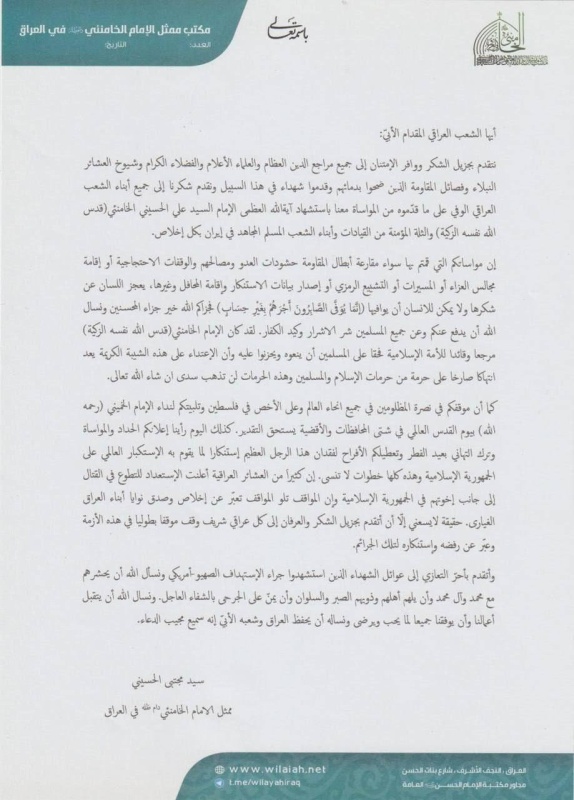 مكتب ممثل الإمام الخامنئي في العراق
العدد:
التاريخ:
باسمه تعالى
أيها الشعب العراقي المقدام الأبيّ:
نتقدم بجزيل الشكر ووافر الإمتنان إلى جميع مراجع الدين العظام والعلماء الأعلام والفضلاء الكرام وشيوخ العشائر
النبلاء وفصائل المقاومة الذين ضحوا بدمائهم وقدموا شهداء في هذا السبيل ونقدم شكرنا إلى جميع أبناء الشعب
العراقي الوفي على ما قدّموه من المواساة معنا باستشهاد آيةالله العظمى الإمام السيد علي الحسيني الخامنئي(قدس
الله نفسه الزكية) والثلة المؤمنة من القيادات وأبناء الشعب المسلم المجاهد في إيران بكل إخلاص.
إن مواساتكم التي قمتم بها سواء مقارعة أبطال المقاومة حشودات العدو ومصالحهم والوقفات الاحتجاجية أو إقامة
مجالس العزاء أو المسيرات أو التشييع الرمزي أو إصدار بيانات الاستنكار وإقامة المحافل وغيرها، يعجز اللسان عن
شكرها ولا يمكن للانسان أن يوافيها (إِنَّمَا يُوَفَّى الصَّابِرُونَ أَجْرَهُمْ بِغَيْرِ حِسَابٍ) فجزاكم الله خير جزاء المحسنين ونسال
الله أن يدفع عنكم وعن جميع المسلمين شر الاشرار وكيد الكفار. لقد كان الإمام الخامنئي(قدس الله نفسه الزكية)
مرجعا وقائدا للأمة الإسلامية فحقا على المسلمين أن ينعوه ويحزنوا عليه وأن الإعتداء على هذه الشيبة الكريمة يعد
انتهاكا صارخا على حرمة من حرمات الإسلام والمسلمين وهذه الحرمات لن تذهب سدى ان شاء الله تعالى.
كما أن موقفكم في نصرة المظلومين في جميع انحاء العالم وعلى الأخص في فلسطين وتلبيتكم لنداء الإمام الخميني (رحمه
الله) بيوم القدس العالمي في شتى المحافظات والأقضية يستحق التقدير. كذلك اليوم رأينا إعلانكم الحداد والمواساة
وترك التهاني بعيد الفطر وتعطيلكم الأفراح لفقدان هذا الرجل العظيم إستنكارا لما يقوم به الإستكبار العالمي على
الجمهورية الإسلامية وهذه كلها خطوات لا تنسى. إن كثيرا من العشائر العراقية أعلنت الإستعداد للتطوع في القتال
إلى جانب إخوتهم في الجمهورية الإسلامية وإن المواقف تلو المواقف تعبّر عن إخلاص وصدق نوايا أبناء العراق
الغيارى. حقيقة لايسعني إلّا أن أتقدم بجزيل الشكر والعرفان إلى كل عراقي شريف وقف موقفا بطوليا في هذه الأزمة
وعبّر عن رفضه واستنكاره لتلك الجرائم.
وأتقدم بأحرّ التعازي إلى عوائل الشهداء الذين استشهدوا جراء الإستهداف الصهيو-أمريكي ونسأل الله أن يحشرهم
مع محمد وآل محمد وأن يلهم أهلهم وذويهم الصبر والسلوان وأن يمنّ على الجرحى بالشفاء العاجل. ونسال الله أن يتقبل
أعمالنا وأن يوفقنا جميعا لما يحب ويرضى ونساله أن يحفظ العراق وشعبه الأبيّ إنه سميع مجيب الدعاء.
سيد مجتبى الحسيني
ممثل الامام الخامنئي دام ظله في العراق
العراق، النجف الأشرف، شارع بنات الحسن
مجاور مكتبة الإمام الحسن العامة
www.wilaiah.net
t.me/wilayahiraq